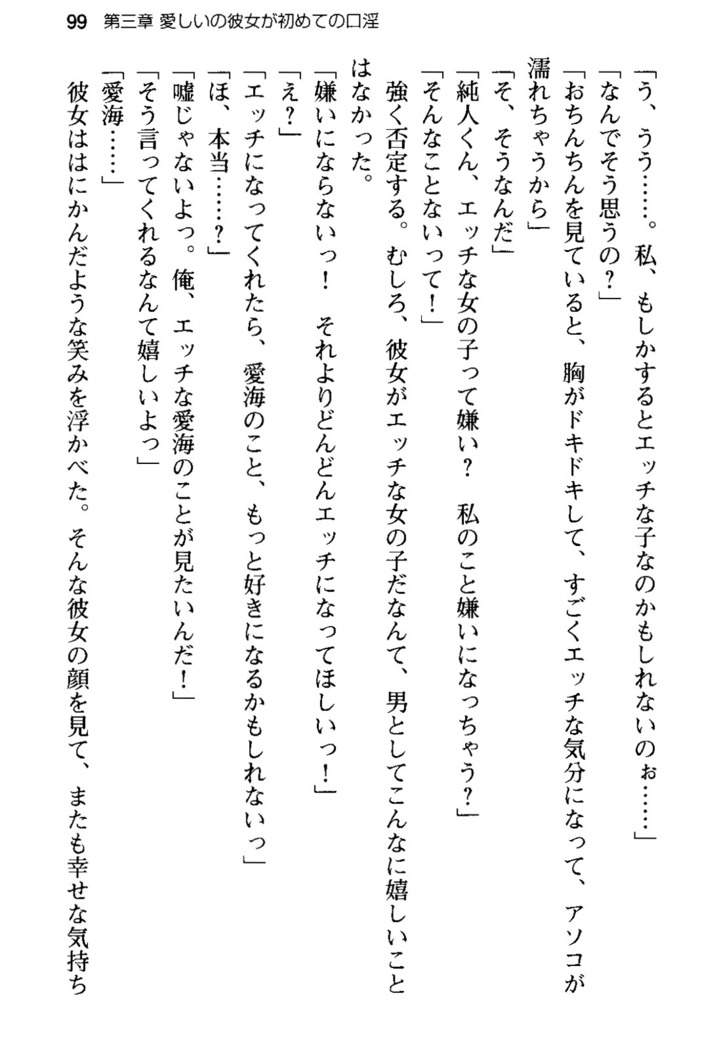 99 第三章 愛しいの彼女が初めての口淫
「う、うう……。私、もしかするとエッチな子なのかもしれないのぉ……」
「なんでそう思うの？」
「おちんちんを見ていると、胸がドキドキして、すごくエッチな気分になって、アソコが
濡れちゃうから」
「そ、そうなんだ」
「純人くん、エッチな女の子って嫌い？　私のこと嫌いになっちゃう？」
「そんなことないって！」
　強く否定する。むしろ、彼女がエッチな女の子だなんて、男としてこんなに嬉しいこと
はなかった。
「嫌いにならないっ！　それよりどんどんエッチになってほしいっ！」
「え？」
「エッチになってくれたら、愛海のこと、もっと好きになるかもしれないっ」
「ほ、本当……？」
「嘘じゃないよっ。俺、エッチな愛海のことが見たいんだ！」
「そう言ってくれるなんて嬉しいよっ」
「愛海……」
　彼女ははにかんだような笑みを浮かべた。そんな彼女の顔を見て、またも幸せな気持ち